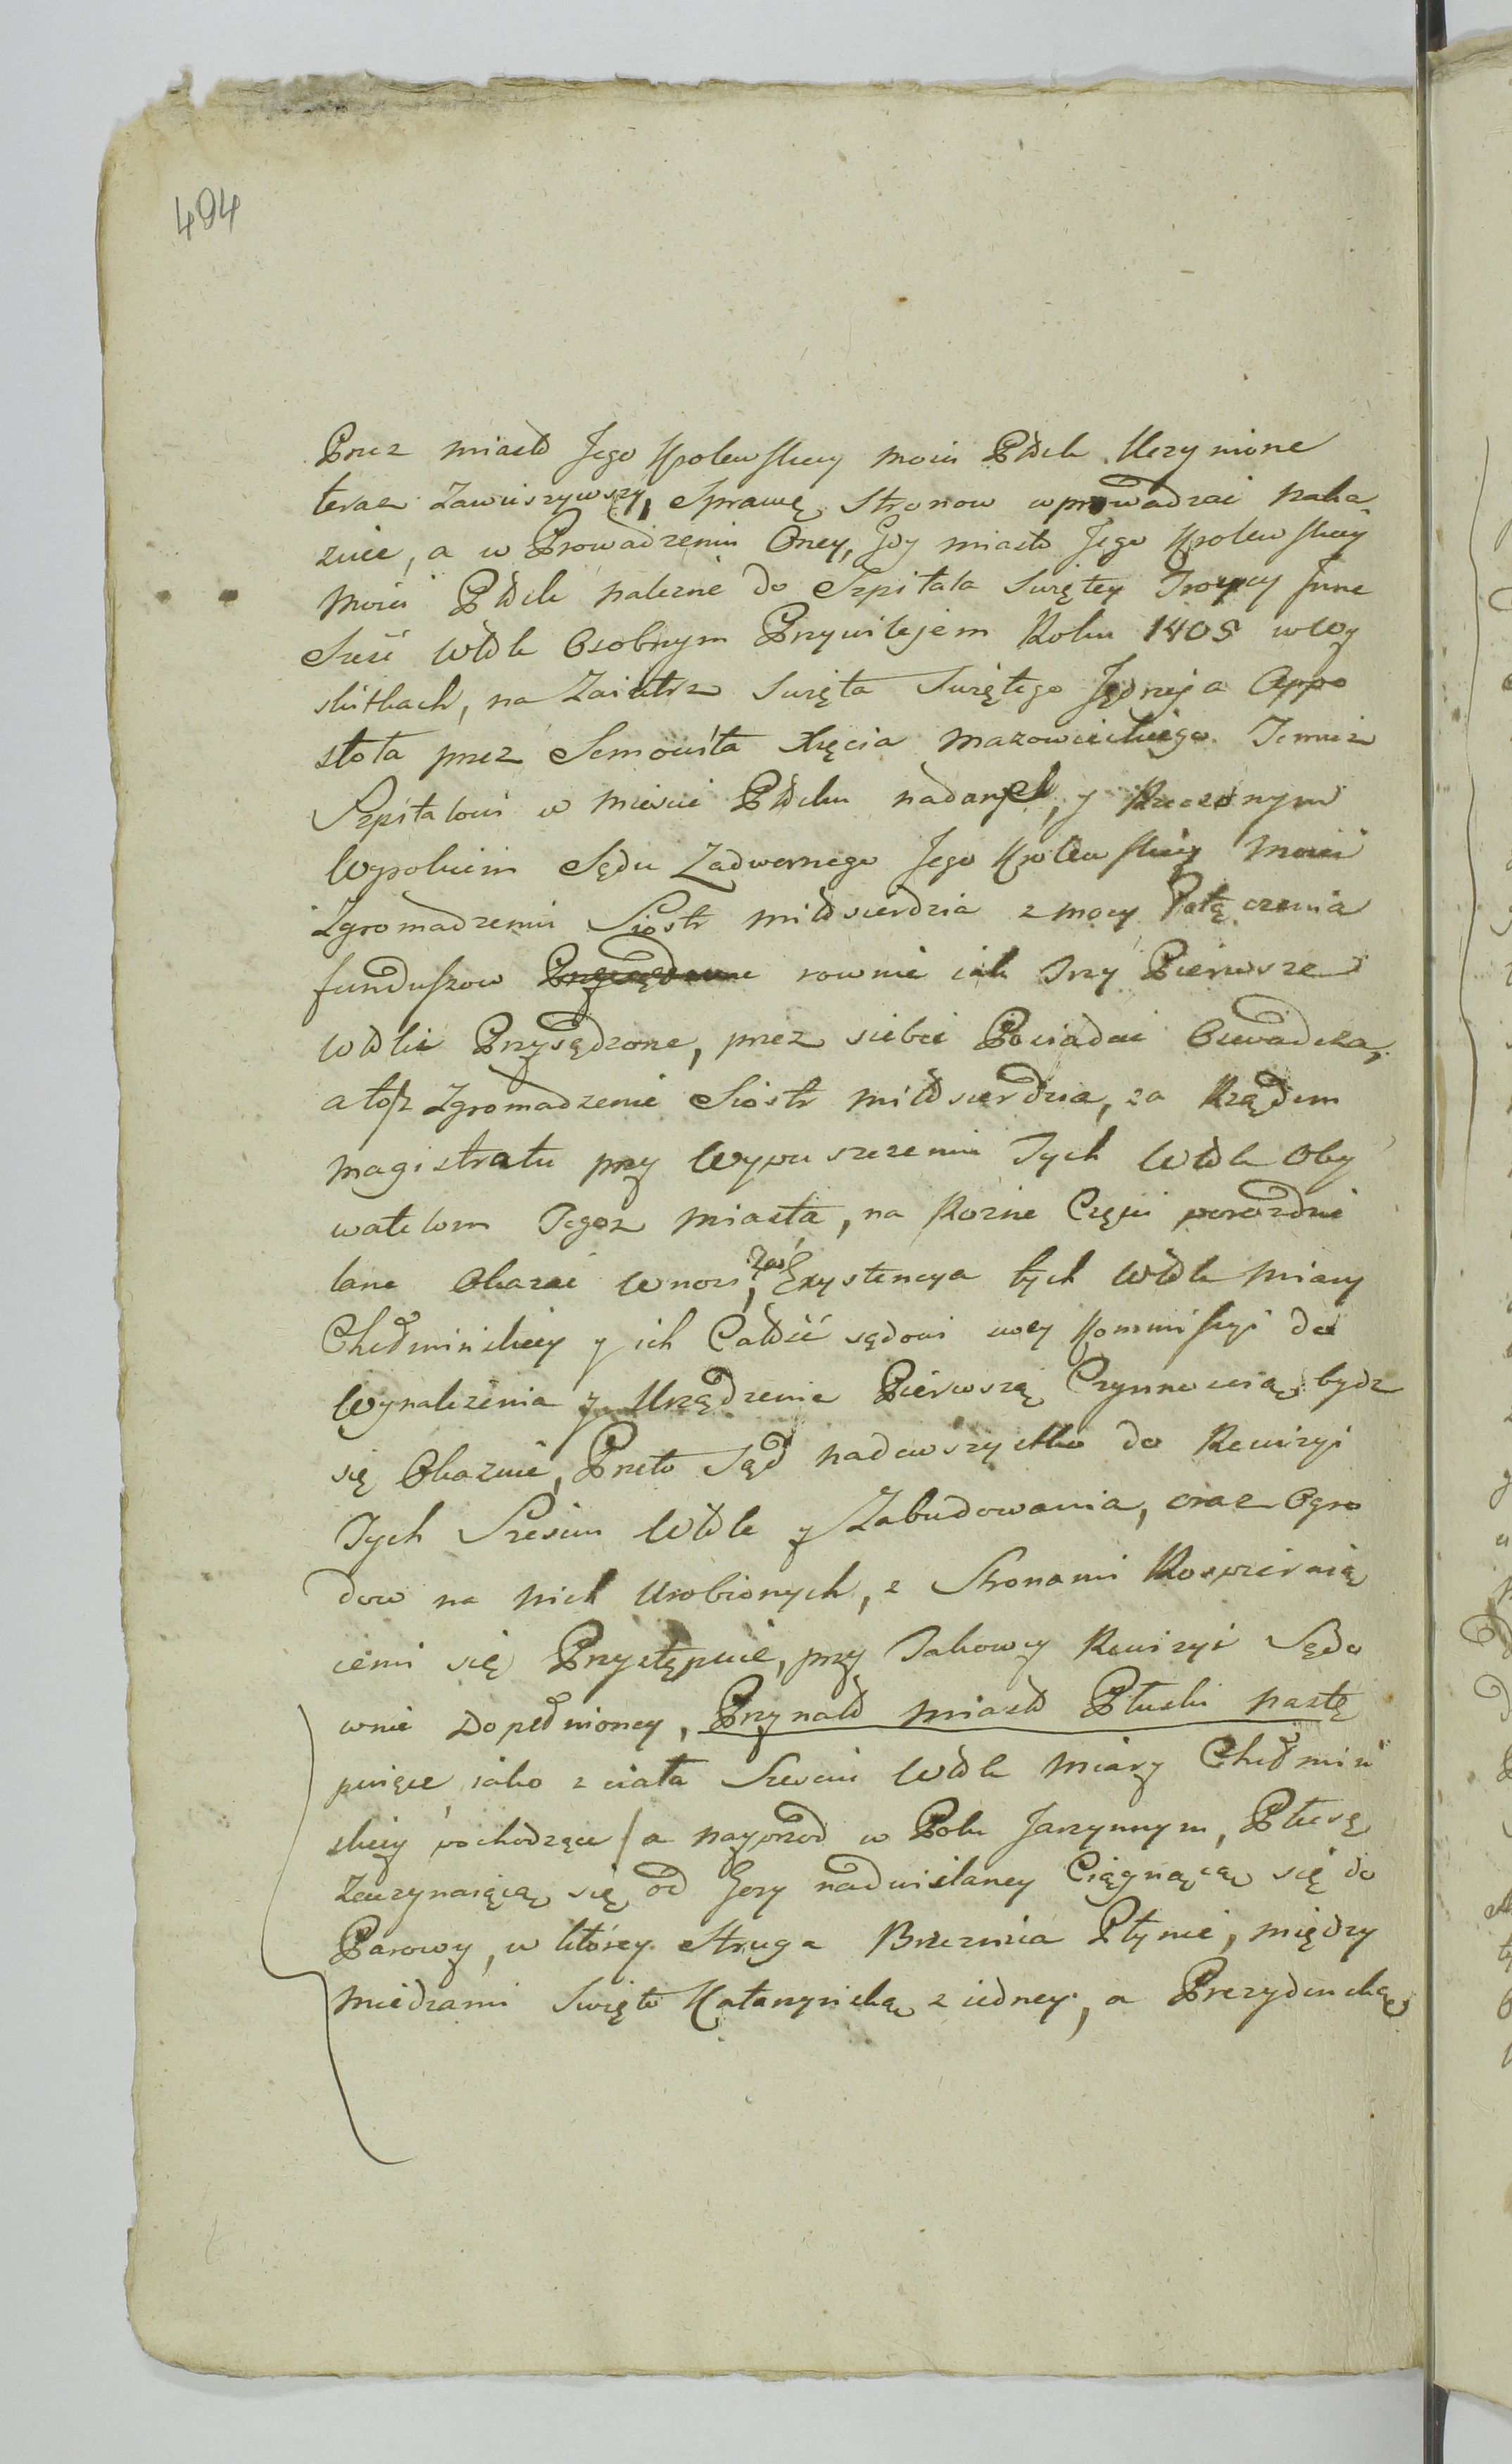 494
Przez miasto Jego Krolewskiey Mości Płock Uczynione
teraz zawieszywszy, Sprawę Stronow wprowadzać naka¬
zuie, a w Prowadzeniu Oney, Gdy miasto Jego Krolewskiey
Mości Płock należne do Szpitala Swiętey Troycy Inne
Sześć Włok Osobnym Przywilejem Roku 1405 w Wy
skitkach, na Zaiutrz Swięta Swiętego Jędrzeja Appo
stoła przez Semowita Xięcia Mazowieckiego Temuż
Szpitalowi w Mieście Płocku nadanych, y Rzeczonym
Wyrokiem Sądu Zadwornego Jego Krolewskiey Mości
Zgromadzeniu Siostr miłosierdzia z mocy Połączenia
funduszow rownie iak Trzy Pierwsze
Włoki Przysądzone, przez siebie Posiadać Oswiadcza,
a toż Zgromadzenie Siostr miłosierdzia, za Rządem
Magistratu przy Wypuszczeniu Tych Włok Oby
watelom Tegoż Miasta, na Rożne Części porozdzie
lane Okazać wnosi, zaś Exystencya tych Włok miary
Chełminskiey y ich Całość sądowi swey Kommissyi do
Wynalezienia y Urządzenia Pierwszą Czynnością bydz
się Okazuie, Przeto Sąd nadewszystko do Rewizyi
Tych Sześciu Włok y Zabudowania, oraz Ogro
dow na nich Urobionych, z Stronami Rospieraią
cemi się Przystępuie, przy Takowey Rewizyi Sądo
wnie Dopełnioney, Przynało miasto Płuski nastę
puiące iako z ciała Sześciu Włok Miary Chełmiń
skiey pochodzące / a nayprzod w Polu Jarzynnym, Płusę
Zaczynaiącą się od Gory nadwislaney Ciągnącą się do
Parowy, w ktorey Struga Brzeznica Płynie, między
Miedzami Swięto Katarzynską z iedney, a Prezydencką